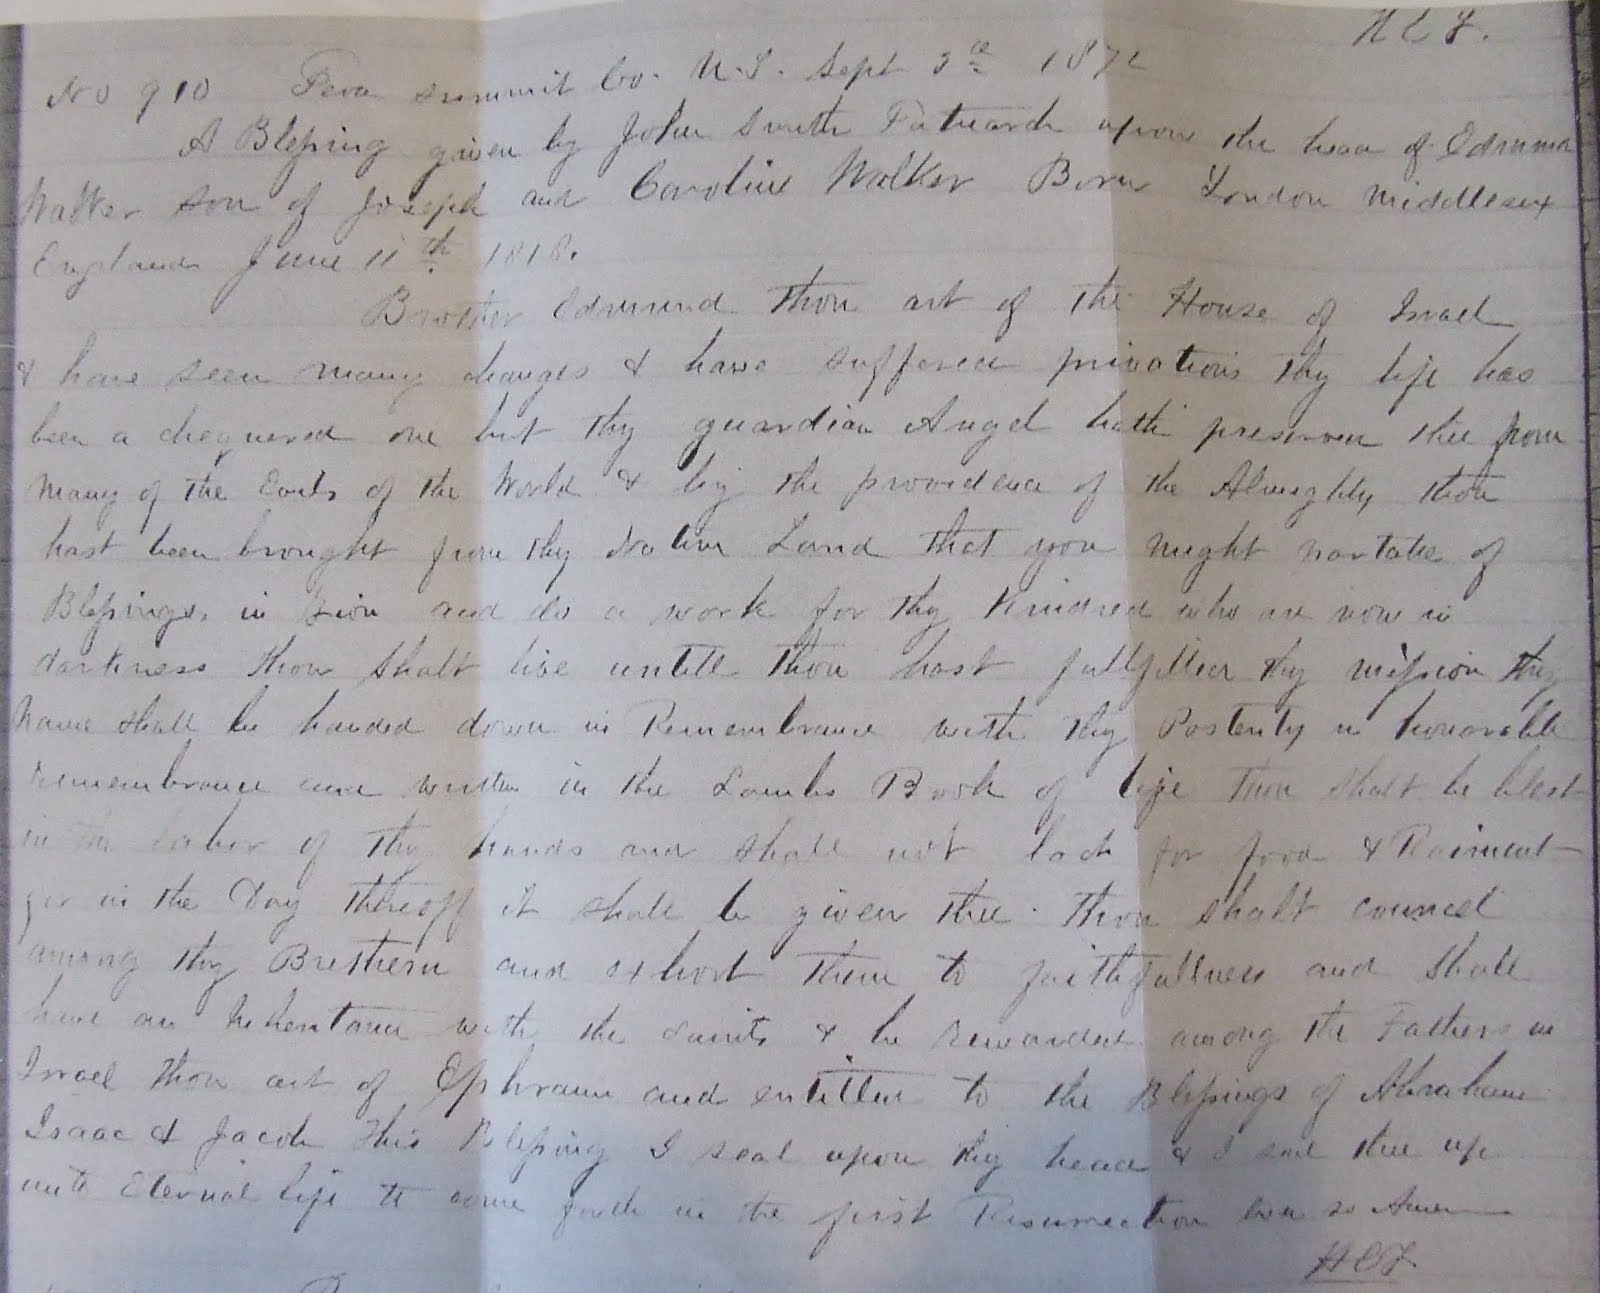 H C F.
No 910 Peoa summit Co. U.T. Sept 3rd 1872
A Blessing given by John Smith Patriarch upon the head of Edmund
Walker son of Joseph and Caroline Walker Born London Middlesex
England June 11th 1818.
Brother Edmund Thou art of the House of Israel
& have seen many changes & have suffered privations Thy life has
been a chequered one but thy guardian Angel hath preserved thee from
many of the Evils of the World & by the providence of the Almighty thou
hast been brought from thy Native Land that you might partake of
Blessings in Zion and do a work for thy Kindred who are now in
darkness Thou shalt live untill thou hast fullfilled thy mission thy
Name shall be handed down in Remembrance with thy Posterity in honorable
remembrance and written in the Lambs Book of life Thou shalt be blest
in the labor of thy hands and shall not lack for food & Raiment
for in the Day thereoff it shall be given thee. Thou shalt councel
among thy Brethern and exhort them to faithfullness and shall
have an Inheritance with the Saints & be rewarded among the Fathers in
Israel thou art of Ephraim and entitled to the Blessings of Abraham
Isaac & Jacob This Blessing I seal upon thy head & I seal thee up
unto Eternal life to come forth in the first Resurrection Even so Amen
H C F